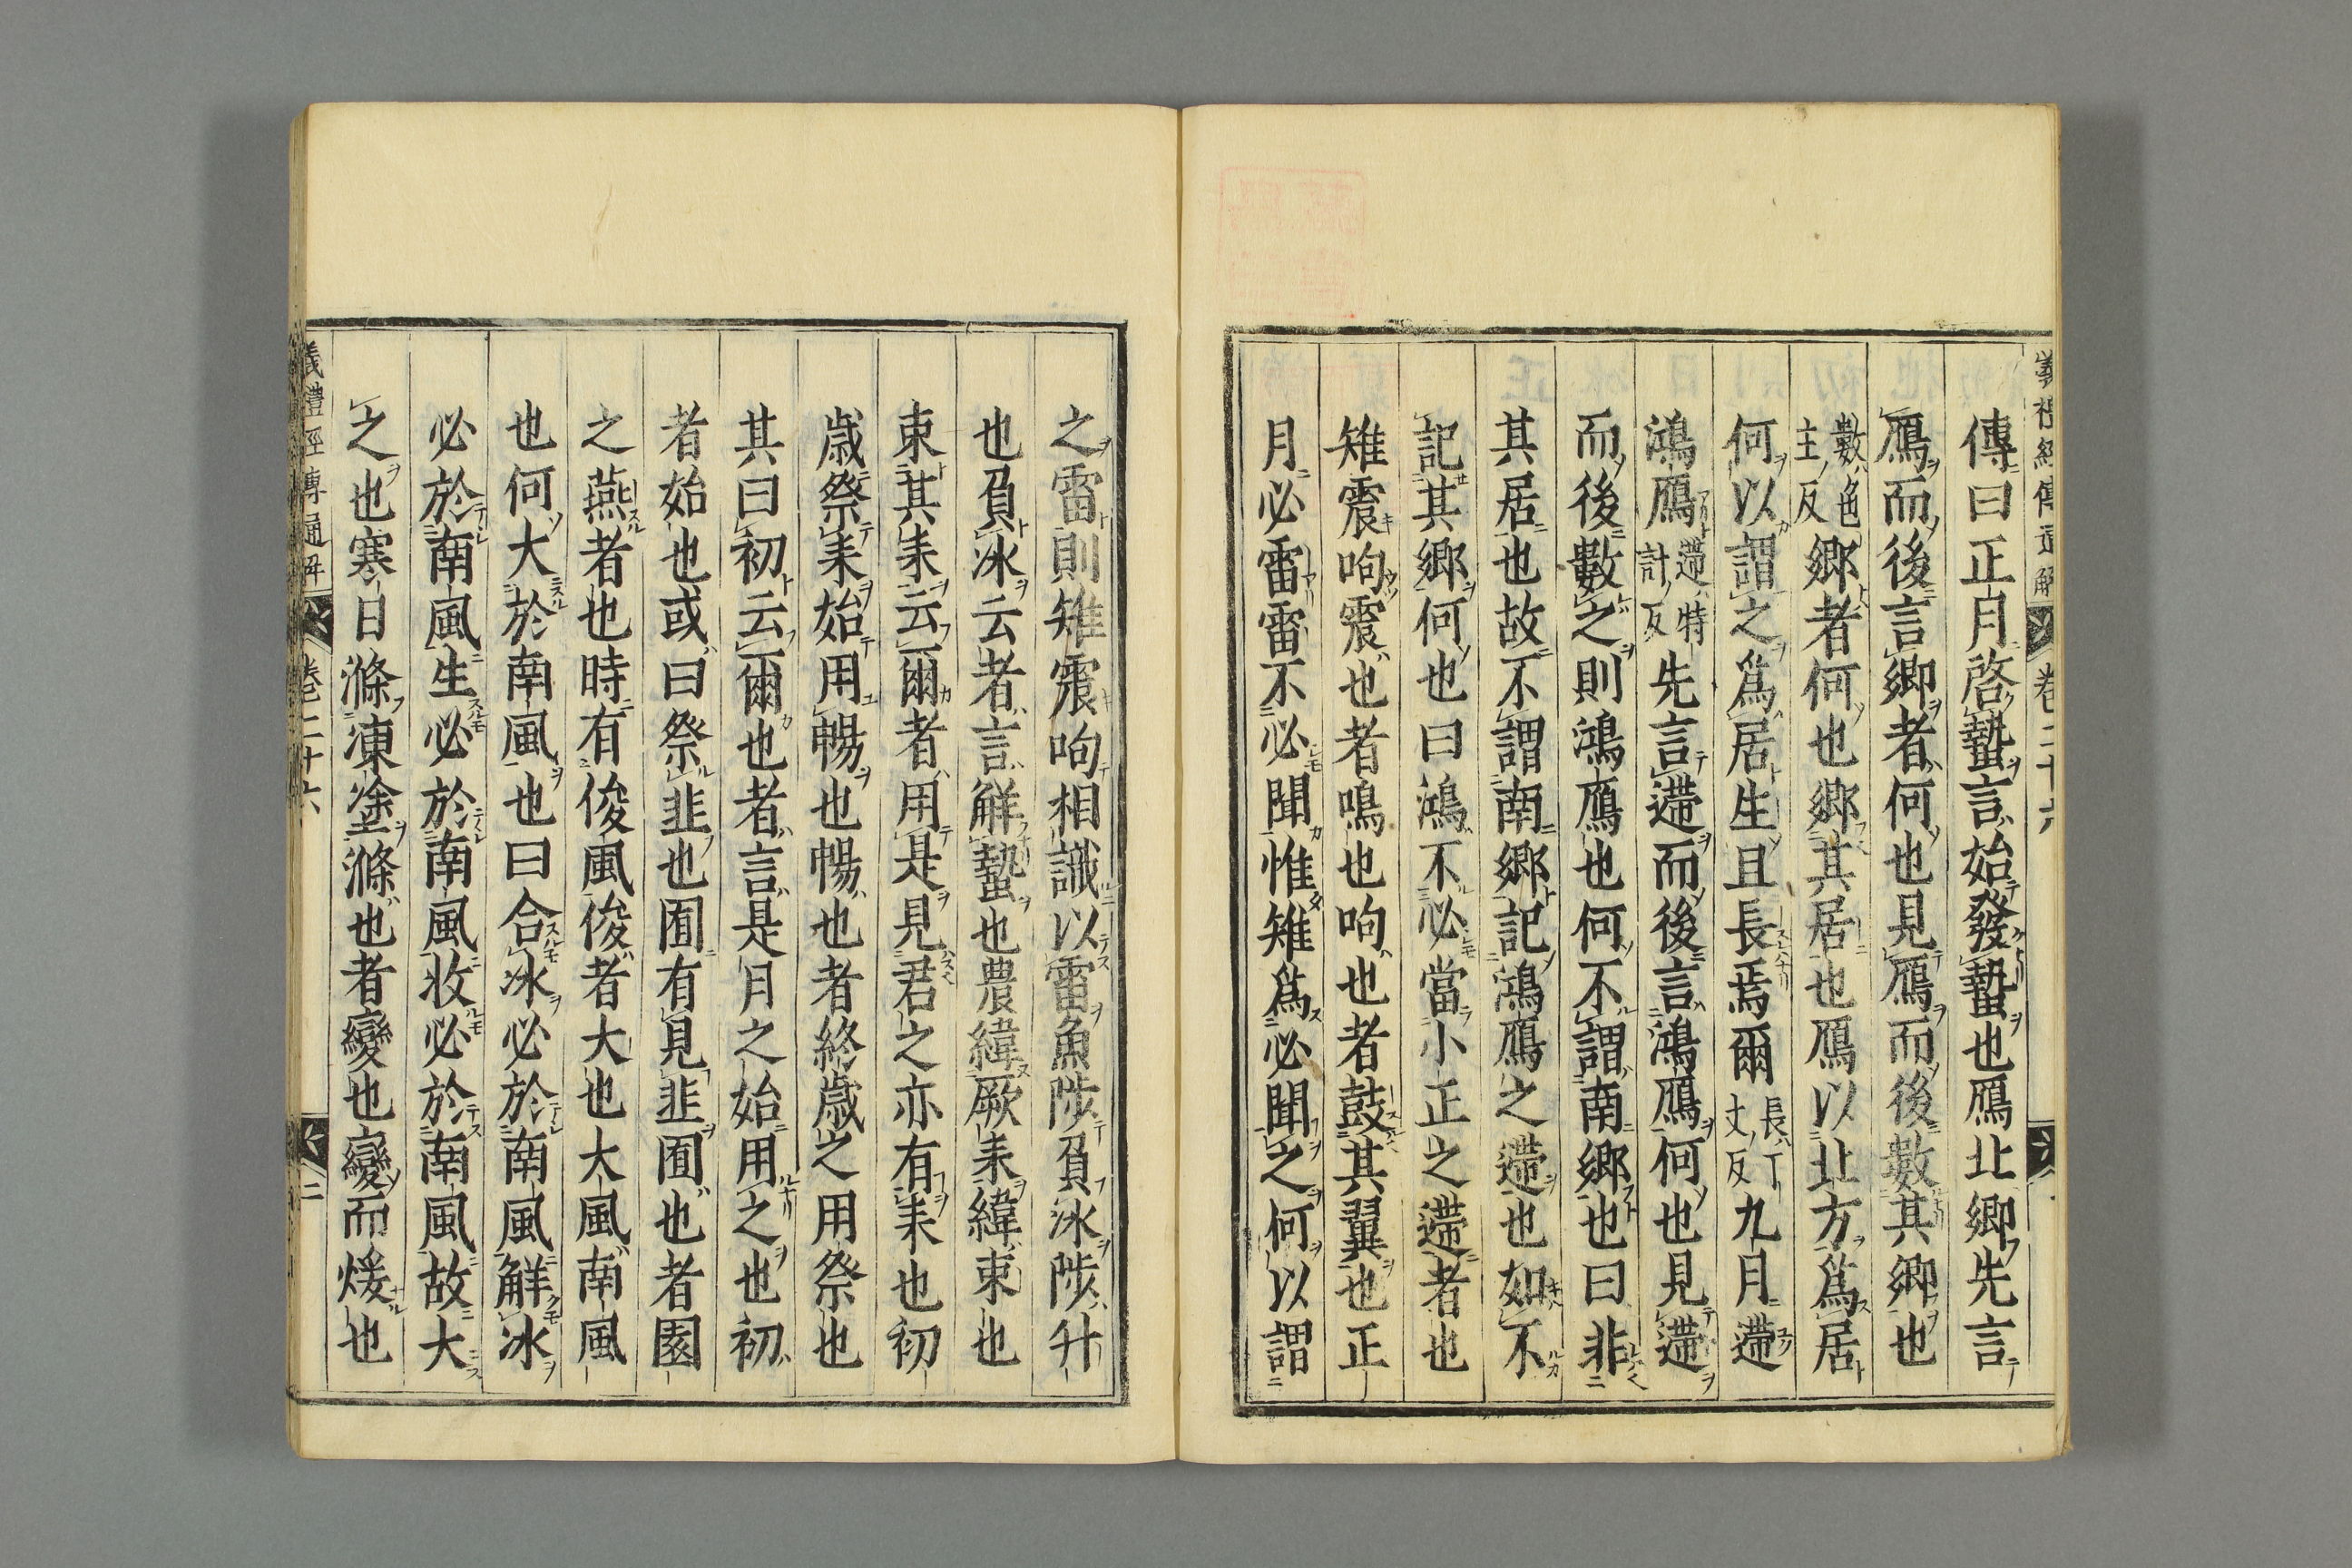 禮經傳通解 卷二十六
傳曰正月啓蟄言始發蟄也鴈北鄉先言
鴈而後言鄉者何也見鴈而後數其鄉也
數色主反鄉者何也鄉其居也鴈以北方爲居
何以謂之爲居生且長焉爾長丁丈反九月遰
鴻鴈遰特計反先言遰而後言鴻鴈何也見遰
而後數之則鴻鴈也何不謂南鄉也曰非
其居也故不謂南鄉記鴻鴈之遰也如不
記其鄉何也曰鴻不必當小正之遰者也
雉震呴震也者鳴也呴也者鼓其翼也正
月必雷雷不必聞惟雉爲必聞之何以謂
之雷則雉震呴相識以雷魚陟負冰陟升
也負冰云者言解蟄也農緯厥耒緯束也
束其耒云爾者用是見君之亦有耒也初
歲祭耒始用暢也暢也者終歲之用祭也
其曰初云爾也者言是月之始用之也初
者始也或曰祭韭也囿有見韭囿也者園
之燕者也時有俊風俊者大也大風南風
也何大於南風也曰合冰必於南風解冰
必於南風生必於南風收必於南風故大
之也寒日滌凍塗滌也者變也變而煖也
禮經傳通解 卷二十六 二